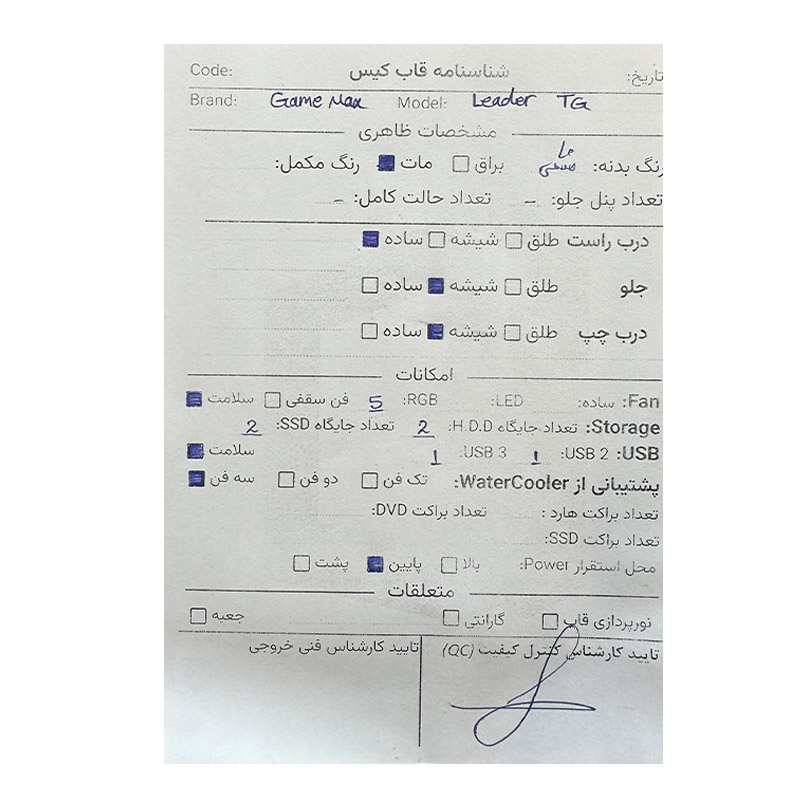 تاریخ: شناسنامه قاب کیس Code:
Brand: Game Max Model: Leader TG
مشخصات ظاهری
رنگ بدنه: براق مات رنگ مکمل:
تعداد پنل جلو: - تعداد حالت کامل: -
درب راست طلق شیشه ساده
جلو طلق شیشه ساده
درب چپ طلق شیشه ساده
امکانات
Fan: ساده: LED: RGB: 5 فن سقفی سلامت
Storage: تعداد جایگاه H.D.D: 2 تعداد جایگاه SSD: 2
USB: USB 2: 1 USB 3: 1 سلامت
پشتیبانی از WaterCooler: تک فن دو فن سه فن
تعداد براکت هارد : تعداد براکت DVD:
تعداد براکت SSD:
محل استقرار Power: بالا پایین پشت
متعلقات
نورپردازی قاب گارانتی جعبه
تایید کارشناس کنترل کیفیت (QC) تایید کارشناس فنی خروجی